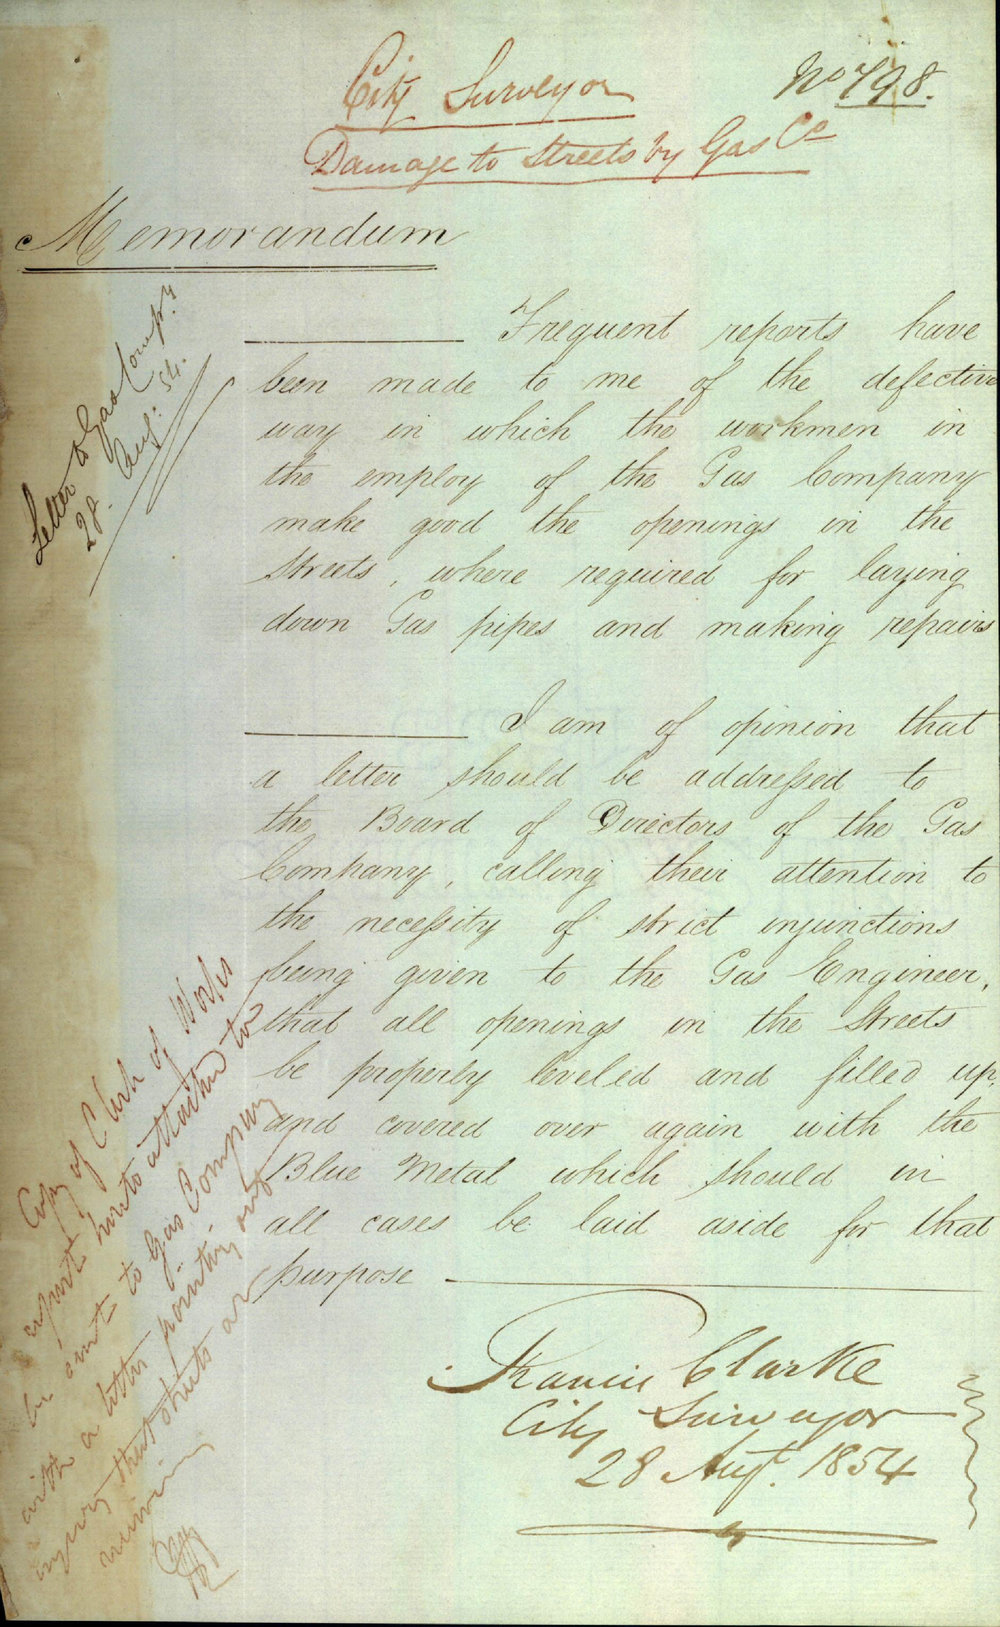 City Surveyor
No 798.
Damage to Streets by Gas Co
Memorandum
Letter to Gas Compy.
28. Aug: 54.
Frequent reports have
been made to me of the defective
way in which the workmen in
the employ of the Gas Company
make good the openings in the
Streets, where required for laying
down Gas pipes and making repairs
I am of opinion that
a letter should be addressed to
the Board of Directors of the Gas
Company, calling their attention to
the necessity of strict injunctions
being given to the Gas Engineer,
that all openings in the Streets
be properly leveled and filled up,
and covered over again with the
Blue Metal which should in
all cases be laid aside for that
purpose
Francis Clarke
City Surveyor
28 Augt. 1854
Copy of Clerk of Works
report hereto attached to
be sent to Gas Company
with a letter pointing out
injury that streets are
receiving